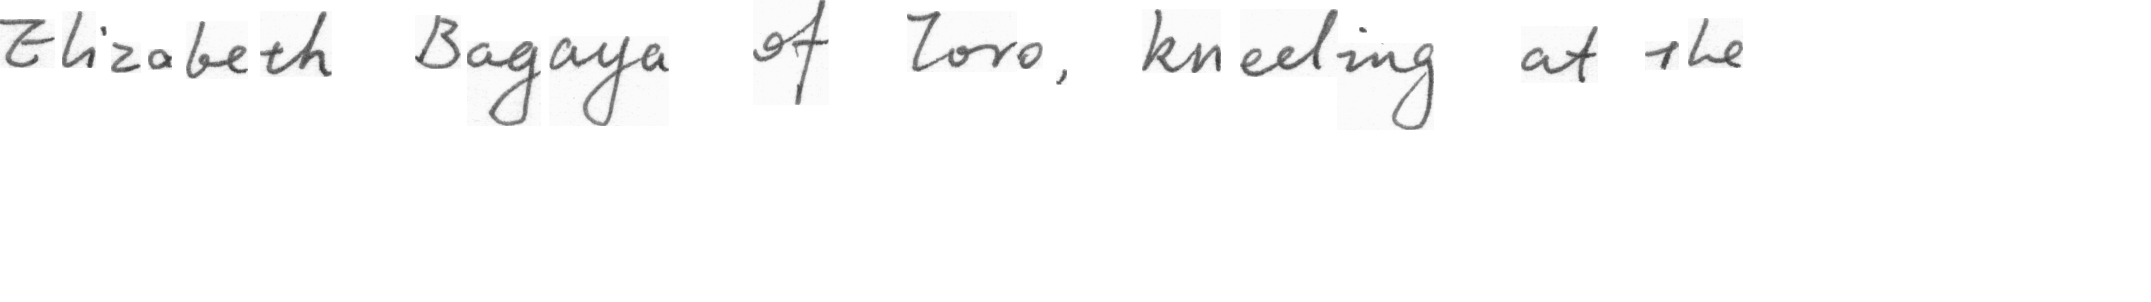 Elizabeth Bagaya of Toro, kneeling at the